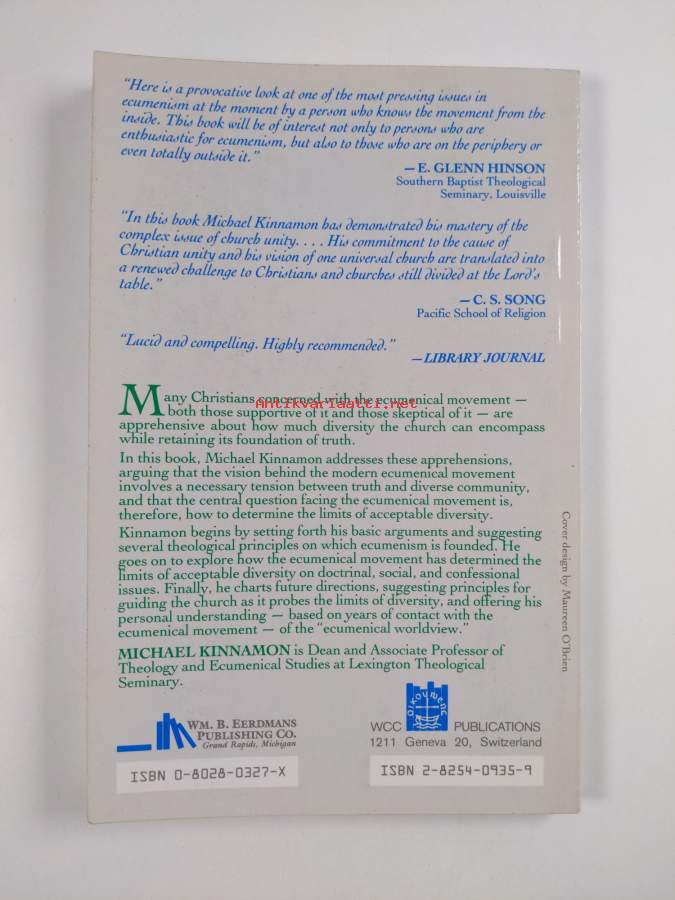 "Here is a provocative look at one of the most pressing issues in
ecumenism at the moment by a person who knows the movement from the
inside. This book will be of interest not only to persons who are
enthusiastic for ecumenism, but also to those who are on the periphery or
even totally outside it."
—E. GLENN HINSON
Southern Baptist Theological
Seminary, Louisville
"In this book Michael Kinnamon has demonstrated his mastery of the
complex issue of church unity. . . . His commitment to the cause of
Christian unity and his vision of one universal church are translated into
a renewed challenge to Christians and churches still divided at the Lord's
table."
—C. S. SONG
Pacific School of Religion
"Lucid and compelling. Highly recommended."
—LIBRARY JOURNAL
Many Christians concerned with the ecumenical movement —
Antikvariaatti.net
both those supportive of it and those skeptical of it — are
apprehensive about how much diversity the church can encompass
while retaining its foundation of truth.
In this book, Michael Kinnamon addresses these apprehensions,
arguing that the vision behind the modern ecumenical movement
involves a necessary tension between truth and diverse community,
and that the central question facing the ecumenical movement is,
therefore, how to determine the limits of acceptable diversity.
Kinnamon begins by setting forth his basic arguments and suggesting
several theological principles on which ecumenism is founded. He
goes on to explore how the ecumenical movement has determined the
limits of acceptable diversity on doctrinal, social, and confessional
issues. Finally, he charts future directions, suggesting principles for
guiding the church as it probes the limits of diversity, and offering his
personal understanding — based on years of contact with the
ecumenical movement — of the "ecumenical worldview."
MICHAEL KINNAMON is Dean and Associate Professor of
Theology and Ecumenical Studies at Lexington Theological
Seminary.
Cover design by Maureen O'Brien
WM. B. EERDMANS
PUBLISHING CO.
Grand Rapids, Michigan
οικουμενε
WCC PUBLICATIONS
1211 Geneva 20, Switzerland
ISBN 0-8028-0327-X
ISBN 2-8254-0935-9